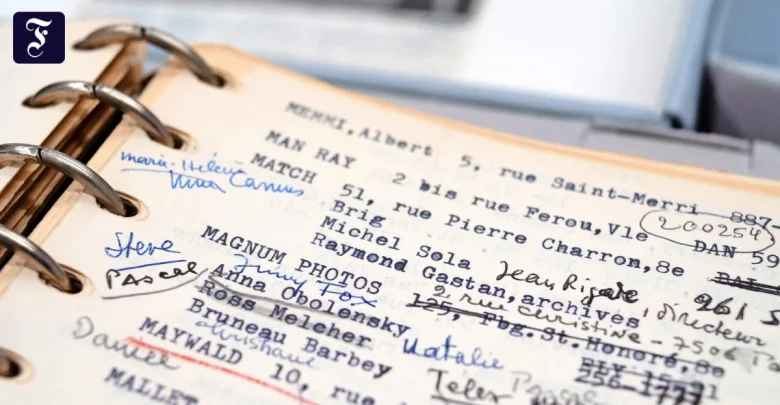 F
MEMMI, Albert 5, rue Saint-Merri 887-
MAN RAY 2 bis rue Ferou, VIe
200254
DAN 59
MATCH 51, rue Pierre Charron, 8e
Marie-Hélène
Camus
Brig
Michel Sola Jean Rigade, directeur 261 5
Raymond Gastan, archives
2 rue Christine - 750
MAGNUM PHOTOS 125, Fbg. St. Honoré, 8e
Steve
Jimmy Fox
Pascal
Anna Obolensky Natalie
256-
Ross Melcher
Bruneau Barbey Telex
Christiane
Daniel
MAYWALD 10, rue
MALLET